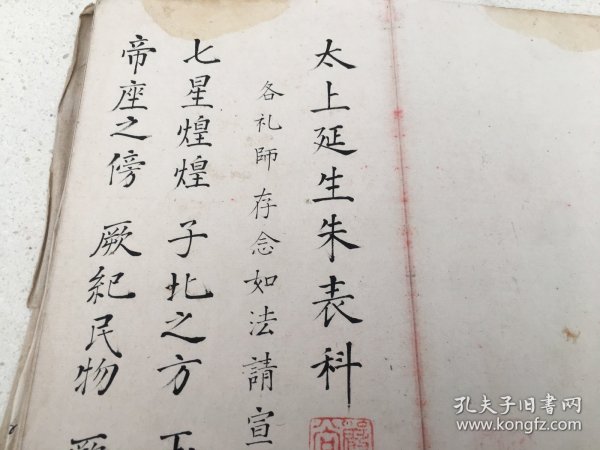 太上延生朱表科
各礼師存念如法請宣
七星煌煌 子北之方
帝座之傍 厥紀民物
孔夫子旧书网
www.kongfz.com